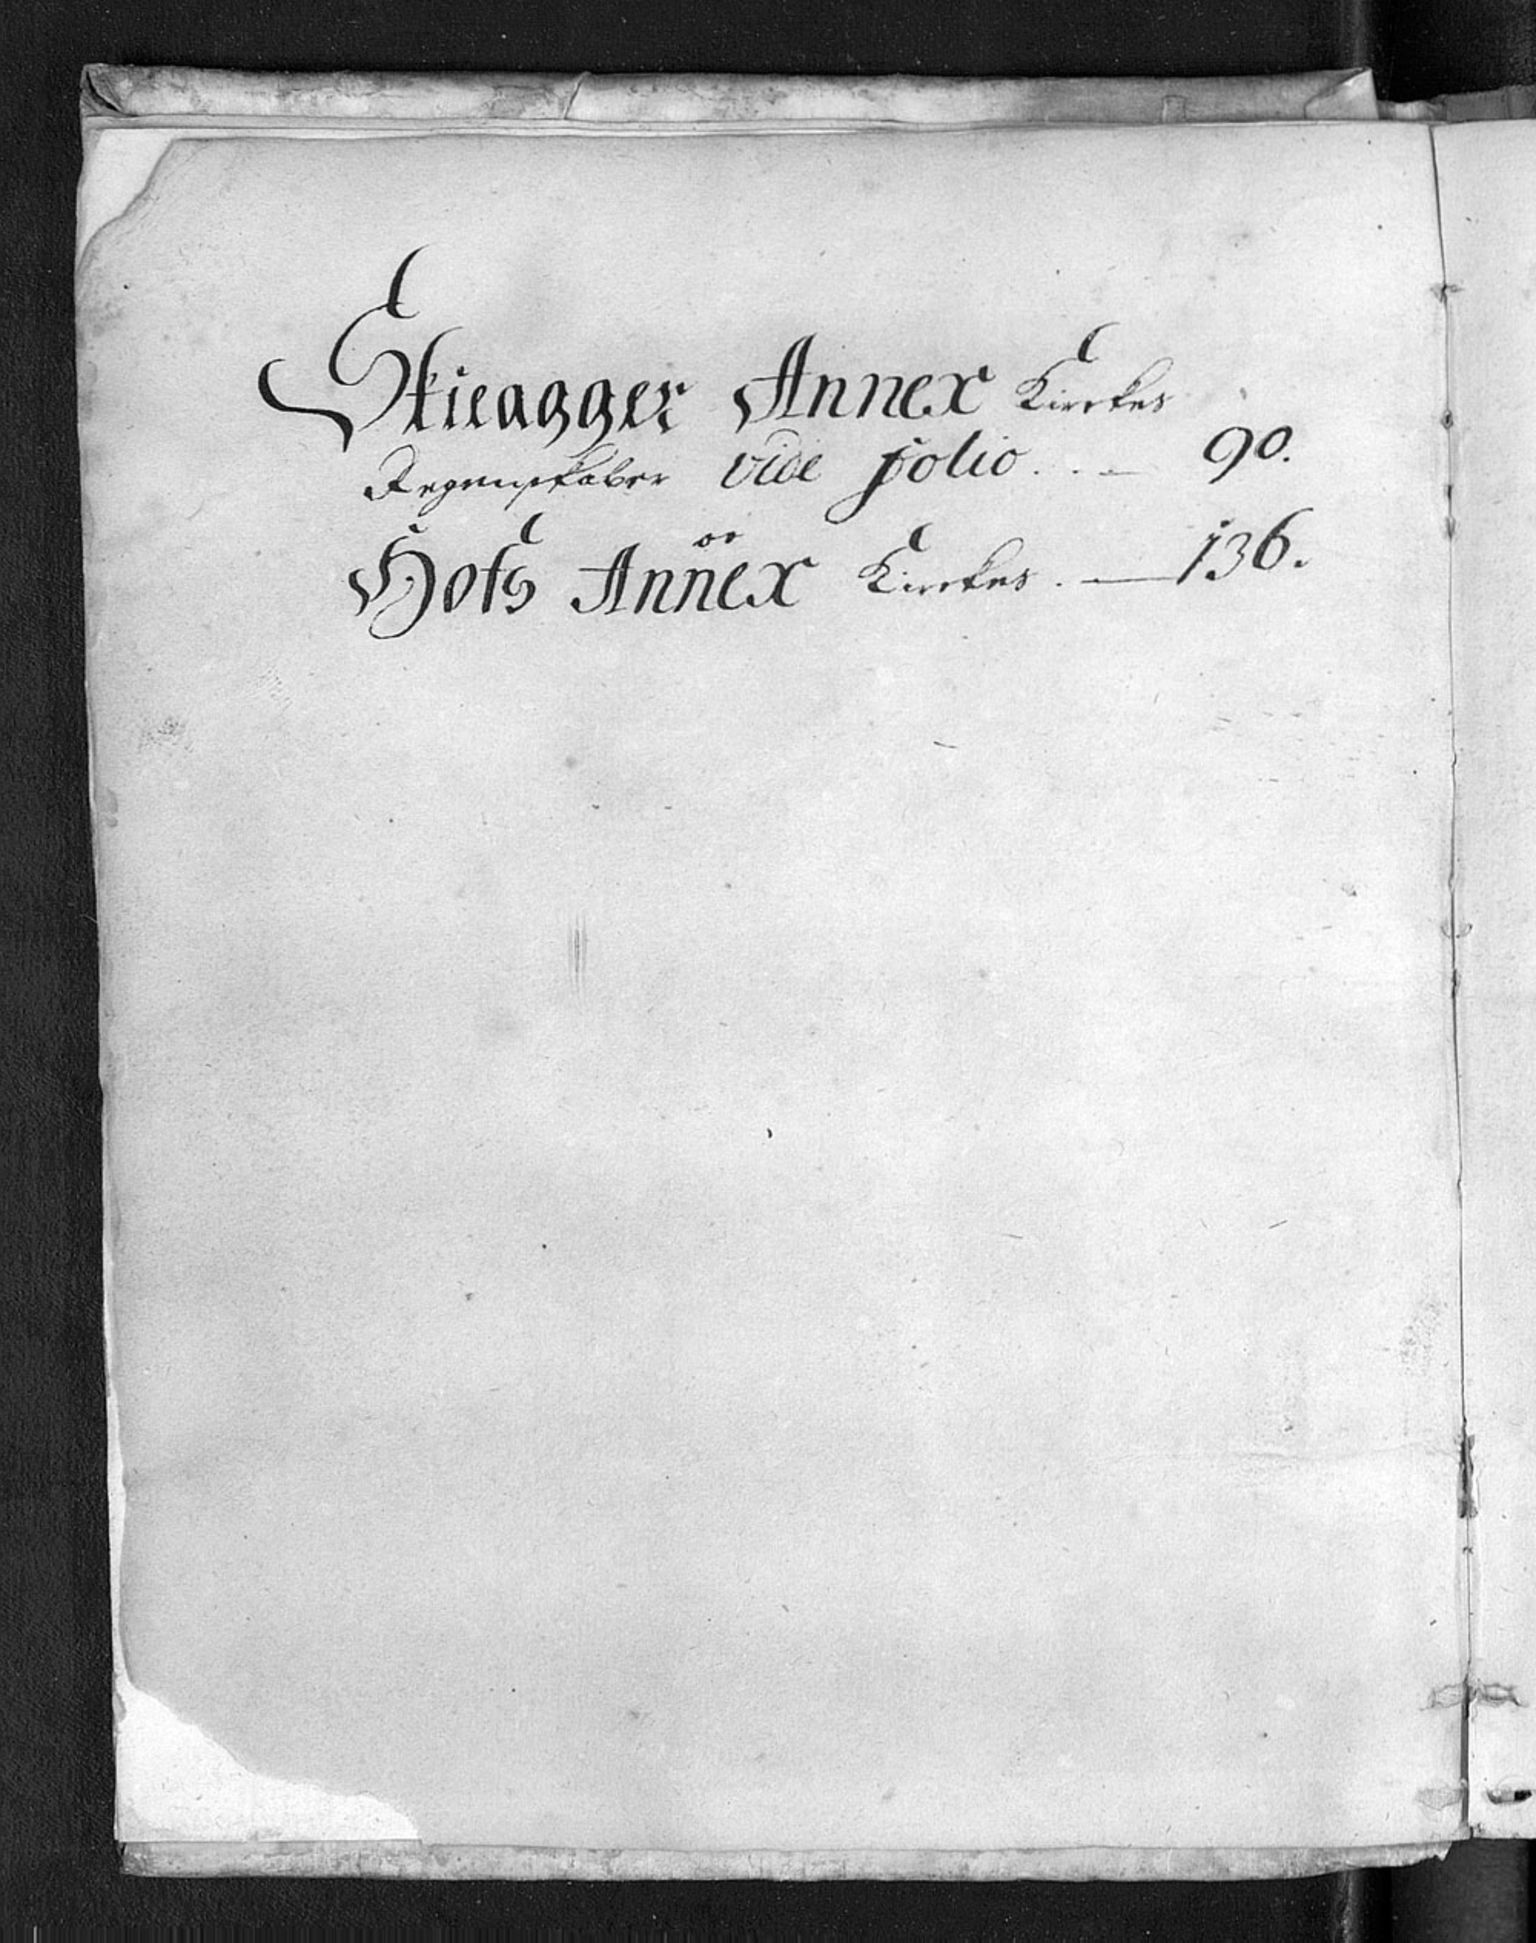 Skieagger Annex Kirckes
Regenskaber vide folio . . - 90.
Hofs Annex Kirckes . — 136.